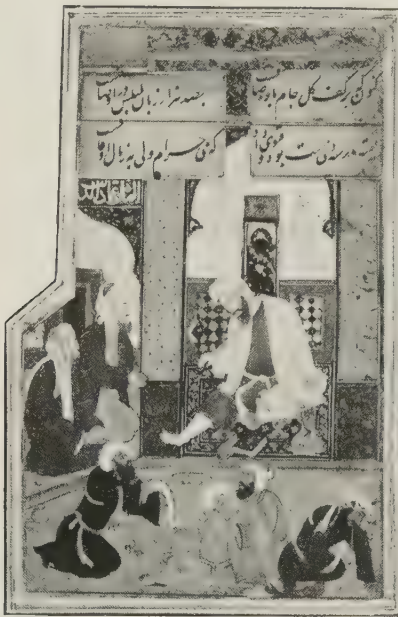 کنون که بر کف کل جام باده صافست بصد هزار زبان بلبلش در اوصافست
مدرسه دی مست بود و فتوی داد که می حرام ولی به ز مال اوقافست